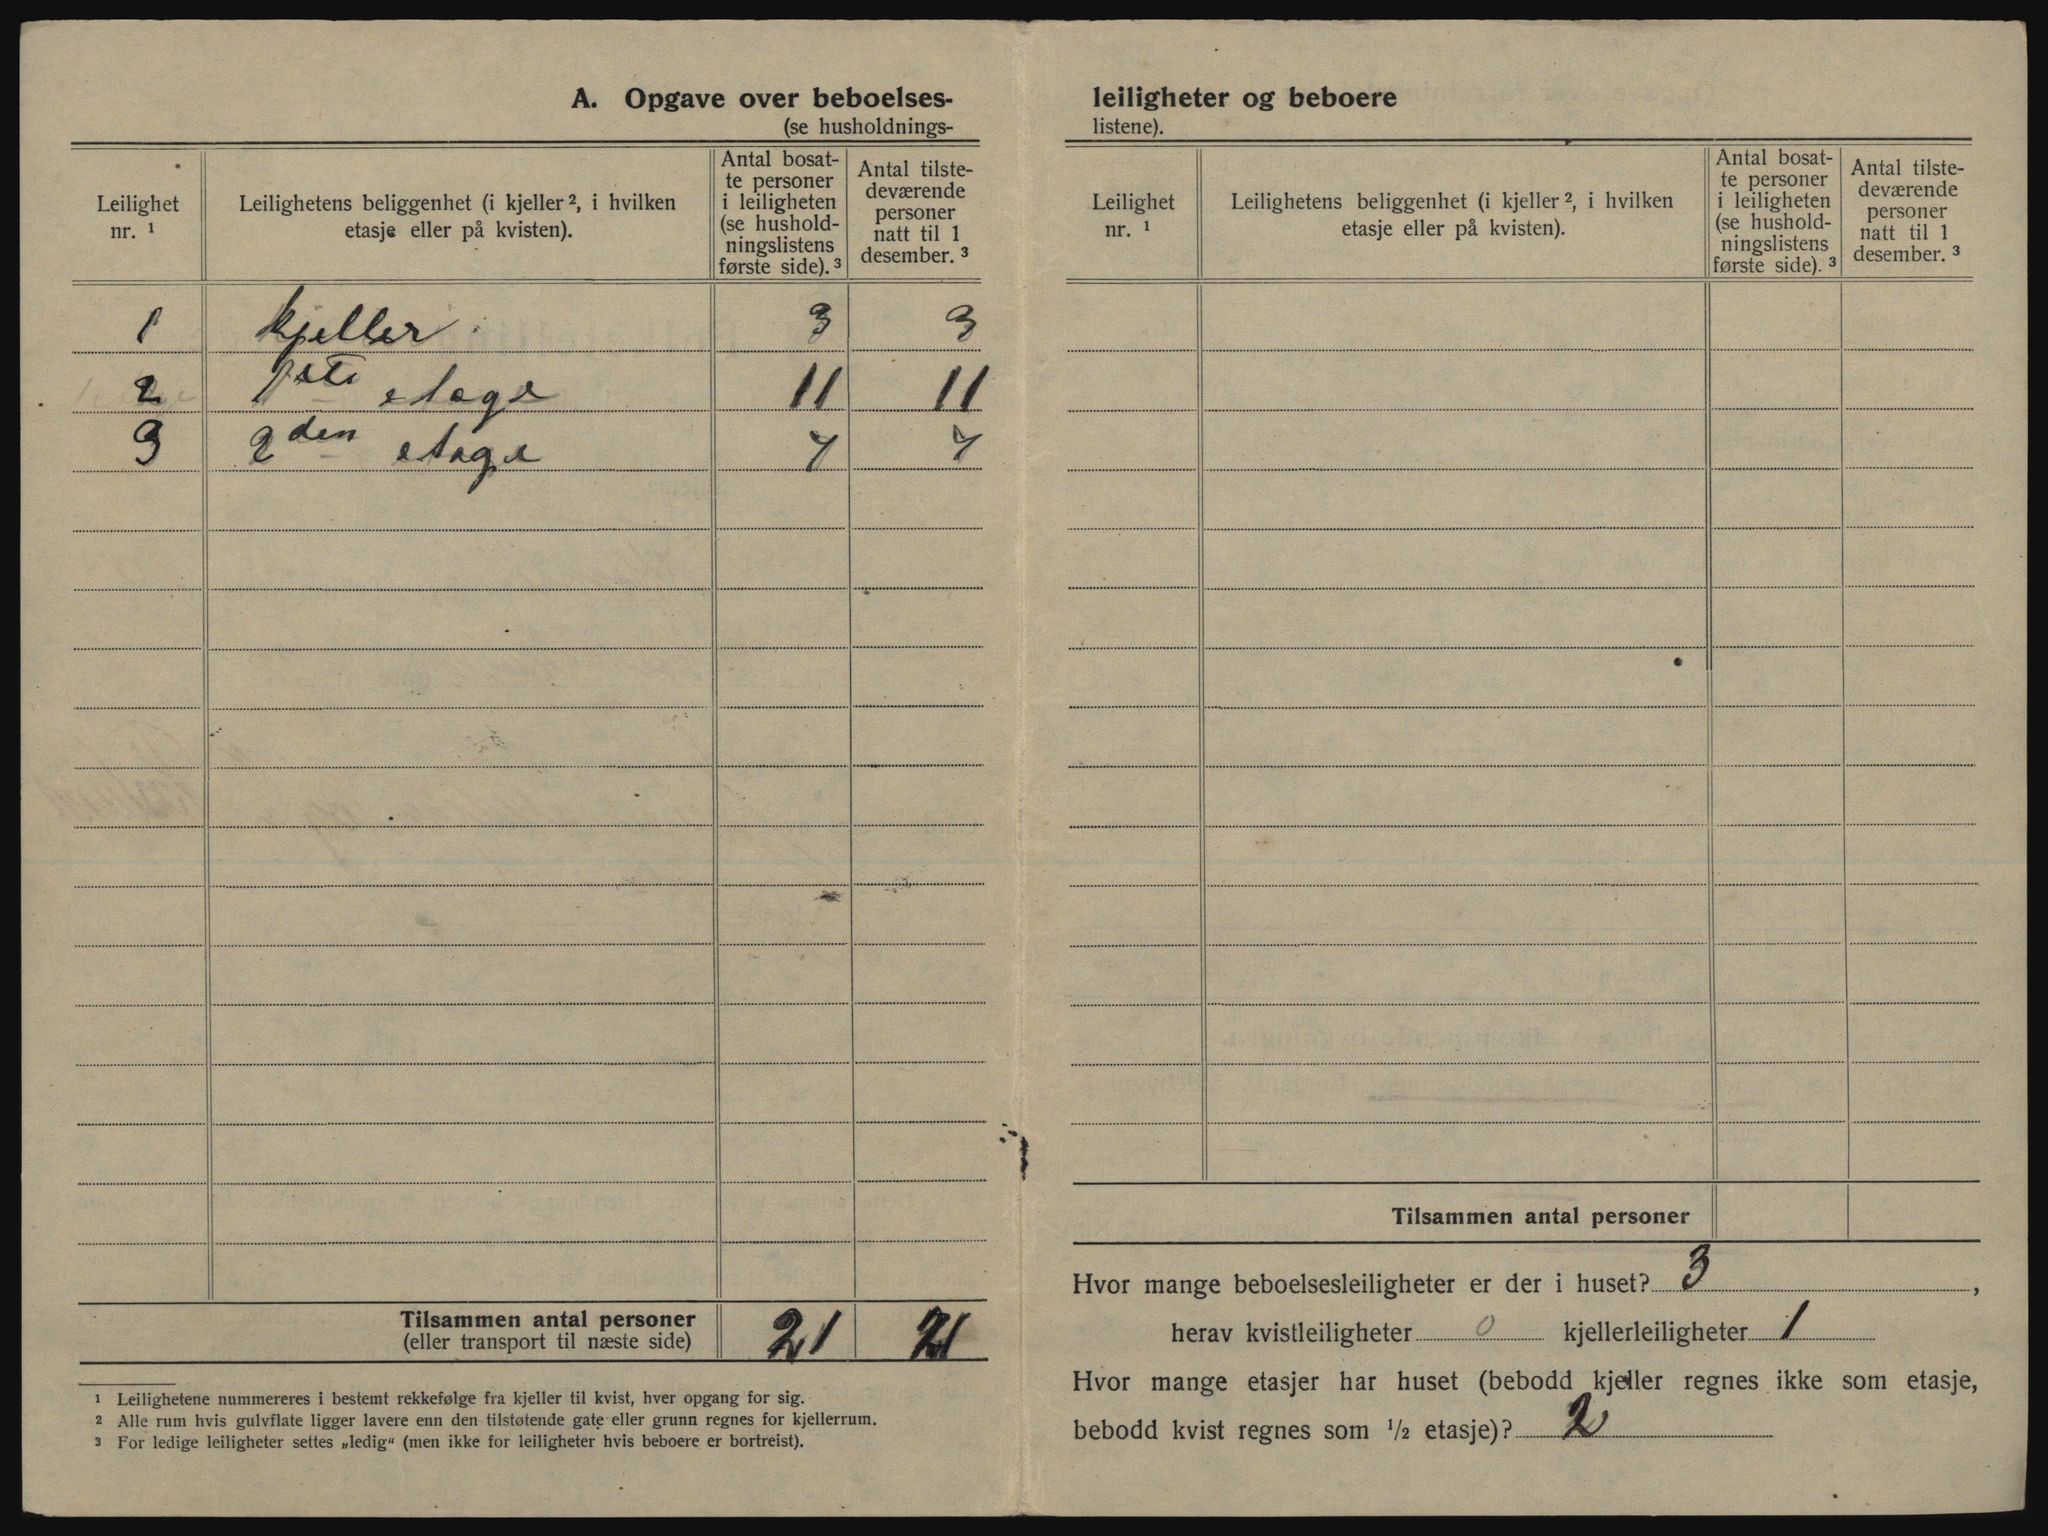 A. Opgave over beboelses-
(se husholdnings-
Leilighet nr. ¹
Leilighetens beliggenhet (i kjeller ², i hvilken etasje eller på kvisten).
Antal bosat-
te personer
i leiligheten
(se hushold-
ningslistens
første side). ³
Antal tilste-
deværende
personer
natt til 1
desember. ³
1 kjeller 3 3
2 1ste etage 11 11
3 2den etage 7 7
Tilsammen antal personer 21 21
(eller transport til næste side)
¹ Leilighetene nummereres i bestemt rekkefølge fra kjeller til kvist, hver opgang for sig.
² Alle rum hvis gulvflate ligger lavere enn den tilstøtende gate eller grunn regnes for kjellerrum.
³ For ledige leiligheter settes „ledig“ (men ikke for leiligheter hvis beboere er bortreist).
leiligheter og beboere
listene).
Leilighet nr. ¹
Leilighetens beliggenhet (i kjeller ², i hvilken etasje eller på kvisten).
Antal bosat-
te personer
i leiligheten
(se hushold-
ningslistens
første side). ³
Antal tilste-
deværende
personer
natt til 1
desember. ³
Tilsammen antal personer
Hvor mange beboelsesleiligheter er der i huset? 3,
herav kvistleiligheter 0 kjellerleiligheter 1
Hvor mange etasjer har huset (bebodd kjeller regnes ikke som etasje,
bebodd kvist regnes som ½ etasje)? 2